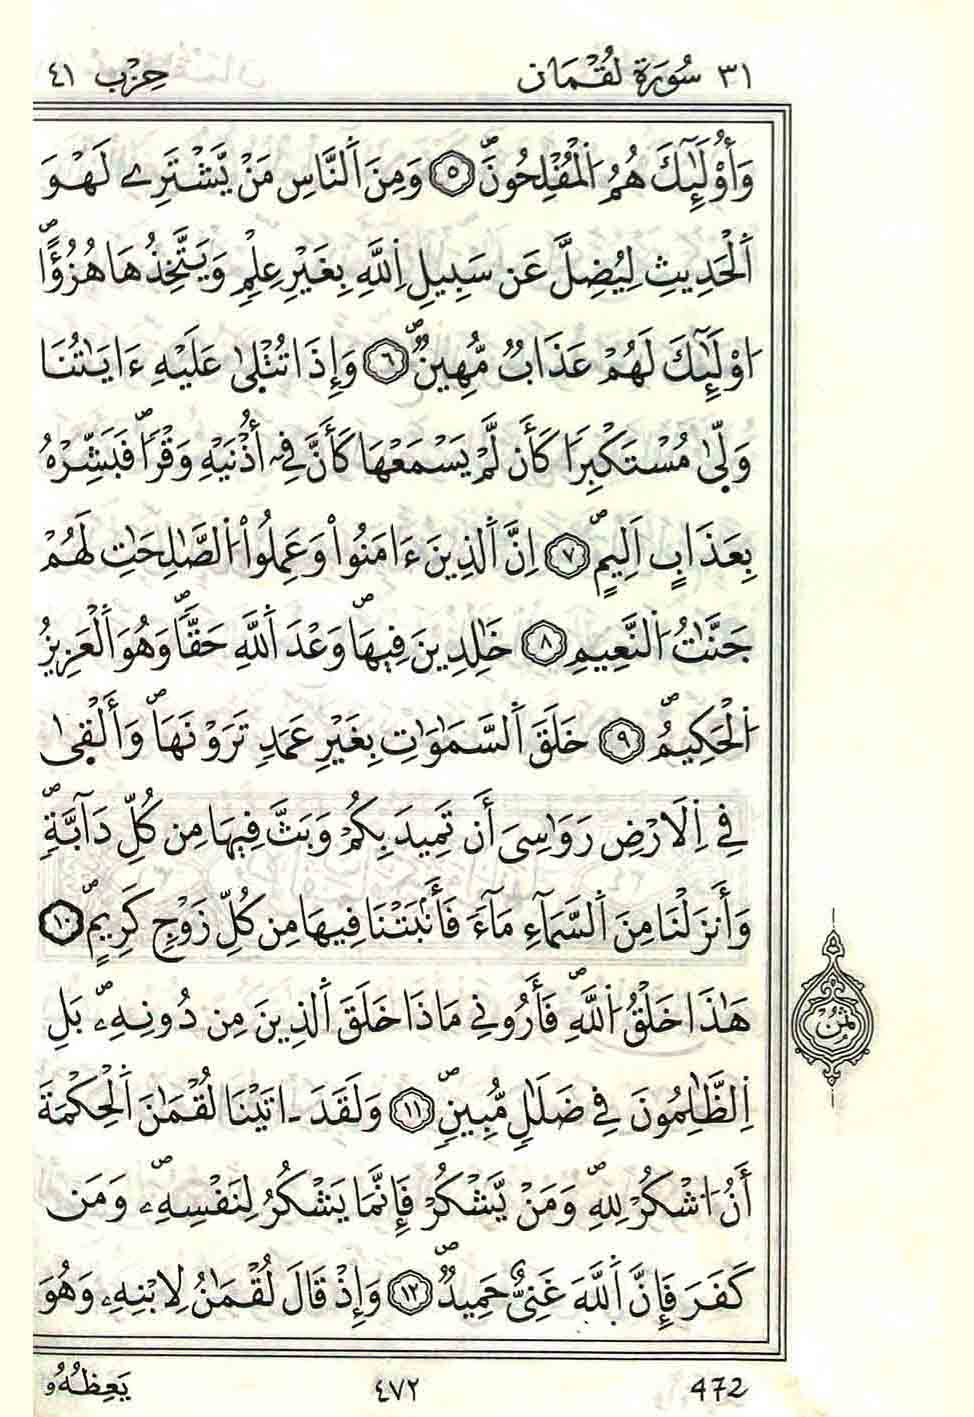 ٣١ سُورَةُ لُقْمَان حِزْب ٤١
وَأُوْلَٰٓئِكَ هُمُ اُ۬لْمُفْلِحُونَۖ ٥ وَمِنَ اَ۬لنَّاسِ مَنْ يَّشْتَرِے لَهْوَ
اَ۬لْحَدِيثِ لِيُضِلَّ عَن سَبِيلِ اِ۬للَّهِ بِغَيْرِ عِلْمٖ وَيَتَّخِذُهَا هُزُؤاًۖ
اوْلَٰٓئِكَ لَهُمْ عَذَابٞ مُّهِينٞۖ ٦ وَإِذَا تُتْلَىٰ عَلَيْهِ ءَايَٰتُنَا
وَلَّىٰ مُسْتَكْبِراٗ كَأَن لَّمْ يَسْمَعْهَا كَأَنَّ فِےٓ أُذْنَيْهِ وَقْراٗۖ فَبَشِّرْهُ
بِعَذَابٍ اَلِيمٍۖ ٧ اِنَّ اَ۬لذِينَ ءَامَنُواْ وَعَمِلُواْ اُ۬لصَّٰلِحَٰتِ لَهُمْ
جَنَّٰتُ اُ۬لنَّعِيمِ ٨ خَٰلِدِينَ فِيهَاۖ وَعْدَ اَ۬للَّهِ حَقّاٗۖ وَهُوَ اَ۬لْعَزِيزُ
اُ۬لْحَكِيمُۖ ٩ خَلَقَ اَ۬لسَّمَٰوَٰتِ بِغَيْرِ عَمَدٖ تَرَوْنَهَاۖ وَأَلْقَىٰ
فِے اِ۬لَارْضِ رَوَٰسِيَ أَن تَمِيدَ بِكُمْ وَبَثَّ فِيهَا مِن كُلِّ دَآبَّةٖۖ
وَأَنزَلْنَا مِنَ اَ۬لسَّمَآءِ مَآءٗ فَأَنۢبَتْنَا فِيهَا مِن كُلِّ زَوْجٖ كَرِيمٍۖ ١٠
هَٰذَا خَلْقُ اُ۬للَّهِۖ فَأَرُونِے مَاذَا خَلَقَ اَ۬لذِينَ مِن دُونِهِۦۖ بَلِ
ثُمُن
اِ۬لظَّٰلِمُونَ فِے ضَلَٰلٖ مُّبِينٖۖ ١١ وَلَقَدَ اٰتَيْنَا لُقْمَٰنَ اَ۬لْحِكْمَةَ
أَنُ اُ۟شْكُرْ لِلهِۖ وَمَنْ يَّشْكُرْ فَإِنَّمَا يَشْكُرُ لِنَفْسِهِۦۖ وَمَن
كَفَرَ فَإِنَّ اَ۬للَّهَ غَنِيٌّ حَمِيدٞۖ ١٢ وَإِذْ قَالَ لُقْمَٰنُ لِابْنِهِۦ وَهُوَ
يَعِظُهُۥ
٤٧٢ 472